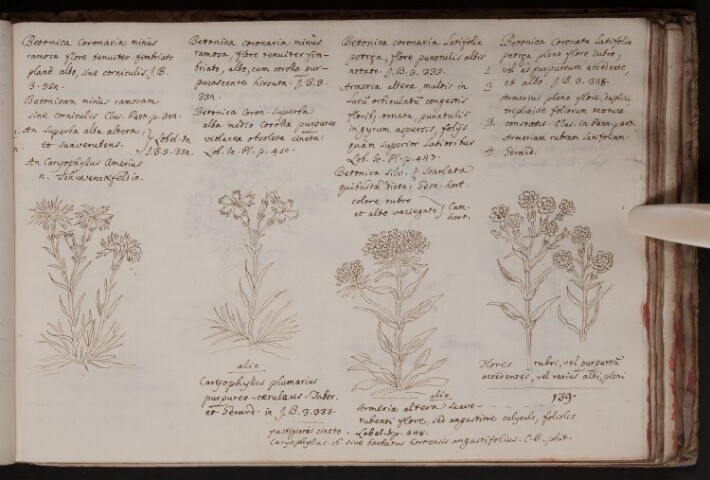 Betonica Coronaria minus
ramosa flore tenuiter fimbriato
albo, sine corniculis. J.B.
3. 332.
Betonicam minus ramosam
sine corniculis Clus. Pann. p.
An Superba alta altera
et suaverubens.
Lobel. In
J.B. 3. 332.
An Caryophyllus
n. Schwenckfeldio.
Betonica coronaria minus
ramosa, flore tenuiter fim-
briato, albo, cum corolla pur-
purascente hirsuta. J.B. 3.
332.
Betonica Coron. superba
alba medio Corolla purpurea
violacea obsoleta cincta.
Lob. Ic. Pl. p. 450.
alio
Caryophyllus plumarius
purpureo-cæruleus Taber.
et Gerard. in J.B. 3. 333.
Betonica coronaria latifolia
petrea, flore punctulis albis
notato. J.B. 3. 333.
Armeria altera multis in
summitate orticulatim congestis
florib. ornata, punctulis
in gyrum aspersis, folys
quam superior latioribus
Lob. Ic. Pl. p. 447.
Betonica Silv. Scarlata
dicta. Gesn. hort.
colore rubro
et albo variegato
Cam.
hort.
alio
Armeria altera suave-
rubenti flore, sed angustiore calyculo, foliolis
Lobel. Ic. p. 448.
Caryophyllus 16. sive barbatus hortensis angustifolius. C.B. phyt.
Betonica Coronata latifolia
petrea pleno flore rubro,
1 vel ad purpureum accedente,
3 et albo. J.B. 3. 338.
Armerius pleno flore, duplici
2 triplicive foliorum textura
constans. Clus. in Pann. p.
Armeriam rubram latifoliam.
4 Gerard.
Flores rubri, vel purpurea
accedentes, vel rarius albi, pleni
139.